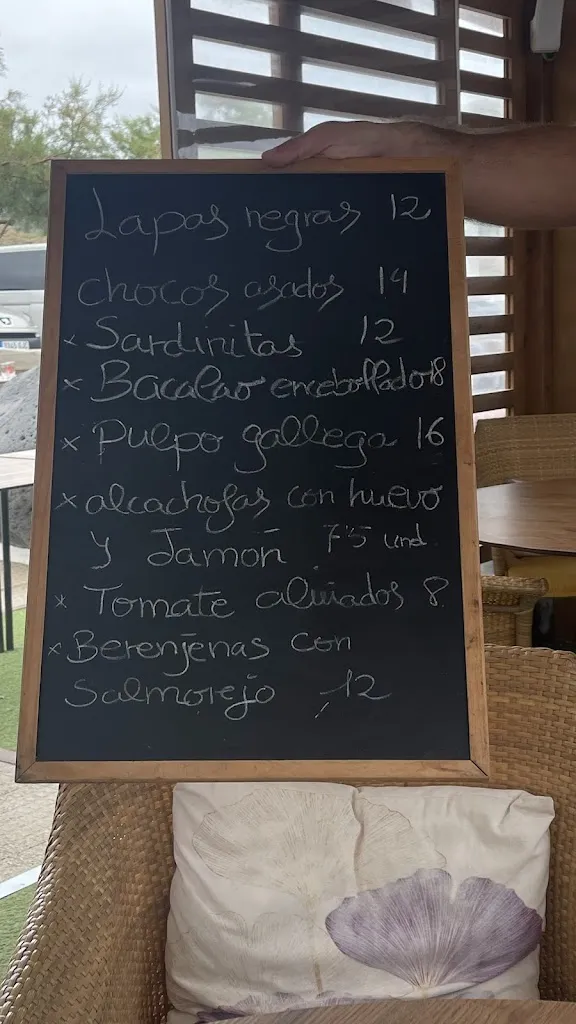 Lapas negras 12
chocos asados 14
x Sardinitas 12
x Bacalao encebollado 18
x Pulpo gallega 16
x alcachofas con huevo
y Jamón 7'5 und.
x Tomate aliñados 8
x Berenjenas con
Salmorejo 12